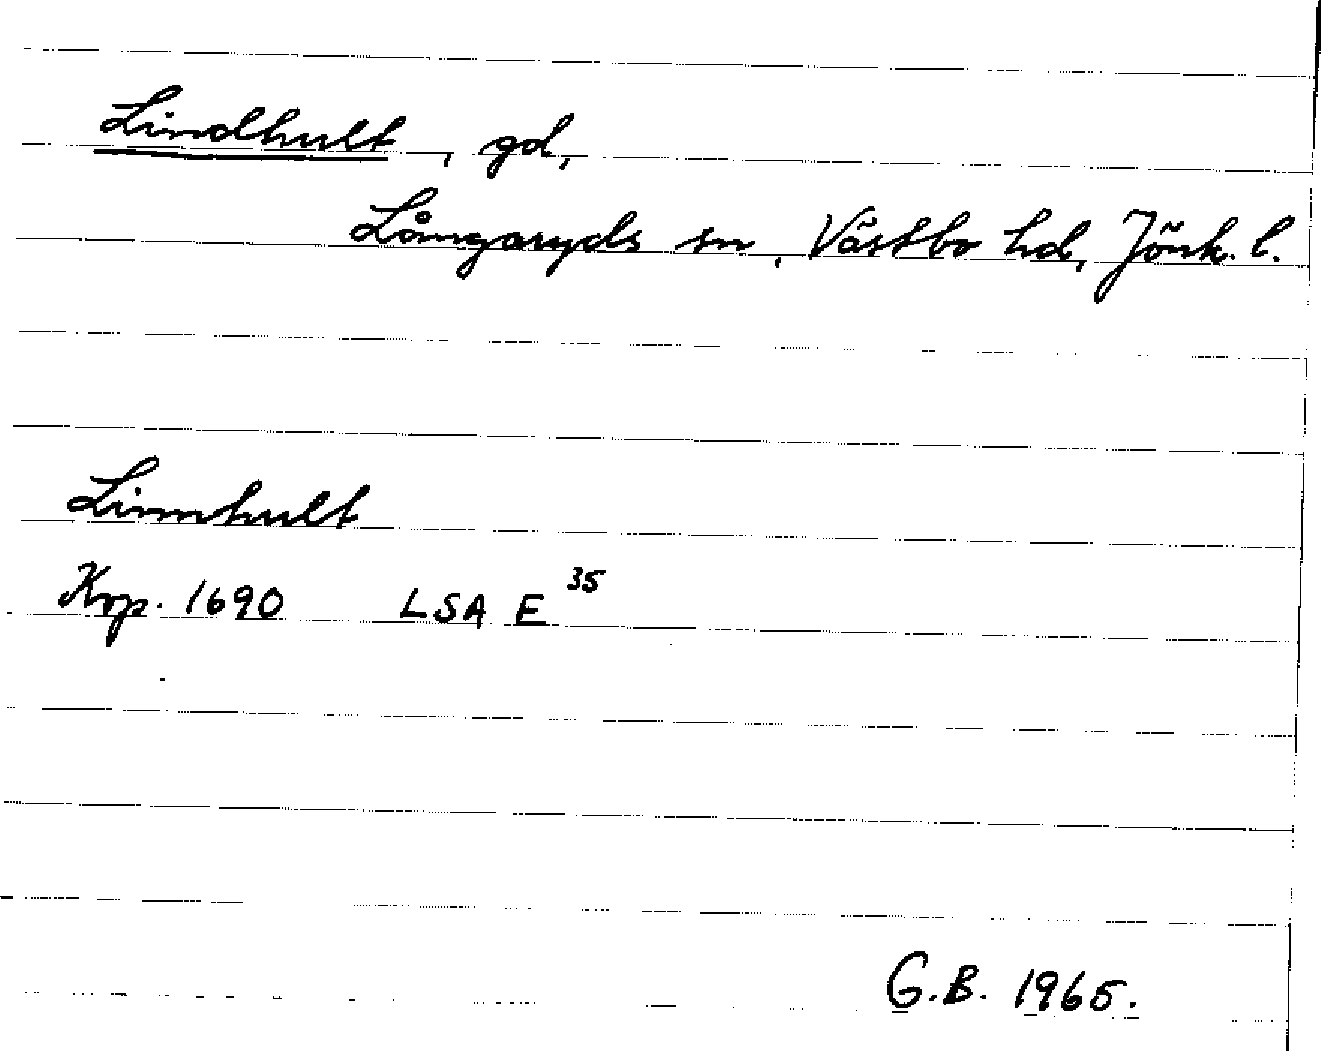 Lindhult, gd,
Långaryds sn, Västbo hd, Jönk. l.
Linnhult
Krp. 1690 LSA E 35
G.B. 1965.